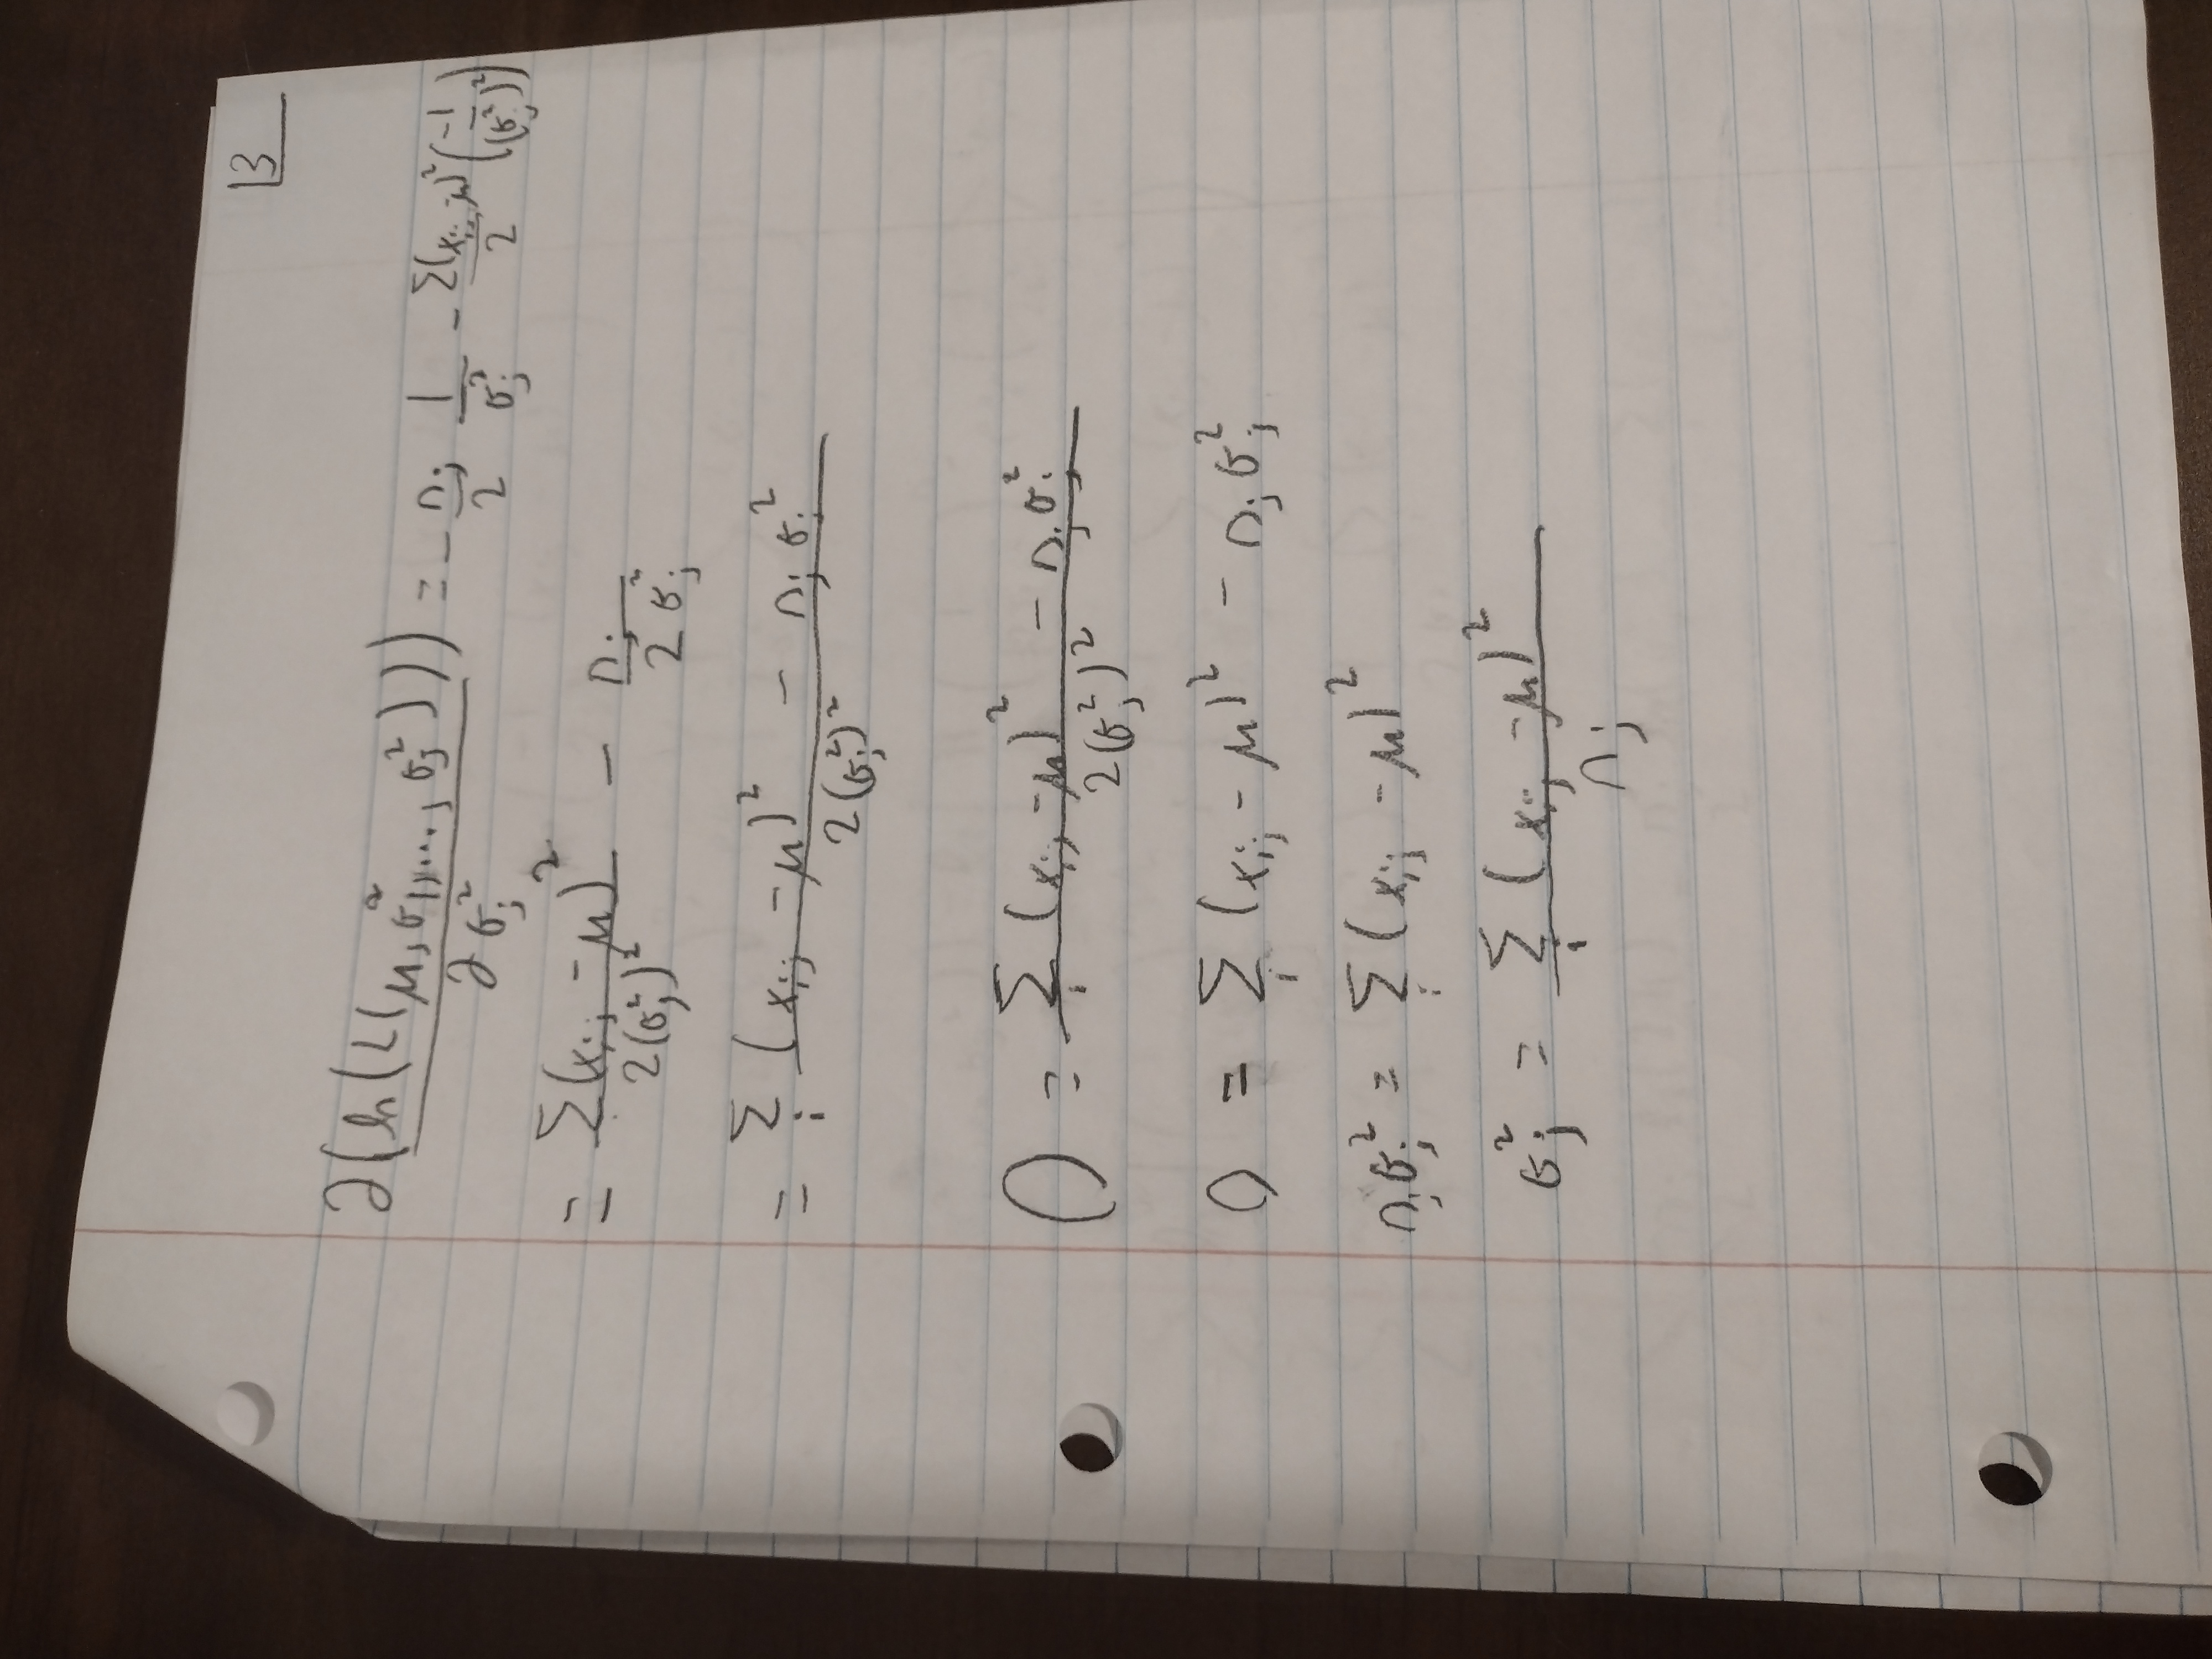 3
∂(ln(L(μ, σ₁², ..., σ_J²))) / ∂σ_j² = - n_j/2 1/σ_j² - Σ(x_ij - μ)²/2 (-1/(σ_j²)²)
= Σ_i(x_ij - μ)² / 2(σ_j²)² - n_j / 2σ_j²
= Σ_i (x_ij - μ)² - n_j σ_j² / 2(σ_j²)²
0 = Σ_i (x_ij - μ)² - n_j σ_j² / 2(σ_j²)²
0 = Σ_i (x_ij - μ)² - n_j σ_j²
n_j σ_j² = Σ_i (x_ij - μ)²
σ_j² = Σ_i (x_ij - μ)² / n_j